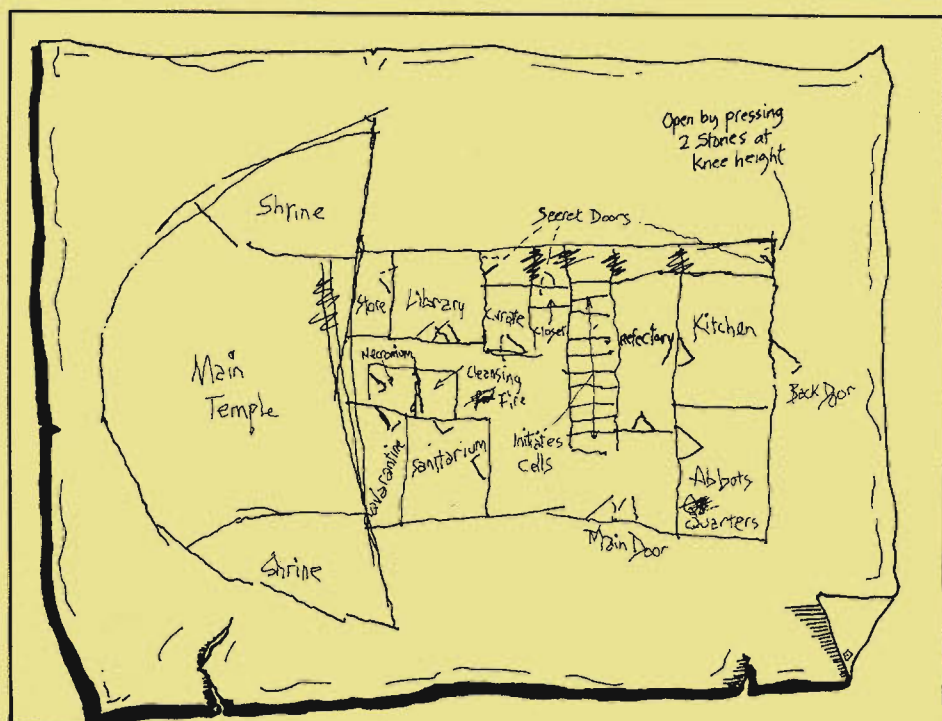 Open by pressing
2 Stones at
Knee height
Shrine
Secret Doors
Store
Library
Curate
Closet
Refectory
Kitchen
Main
Temple
Necronium
Cleansing
Fire
Back Door
Quarantine
Sanitarium
Initiates
Cells
Abbots
Quarters
Main Door
Shrine